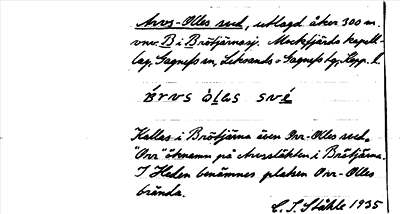 Arvs-Olles sved, utlagd åker 300 m.
vnv. B i Brötjärnasj. Mockfjärds kapell-
lag, Gagnefs sn, Leksands o Gagnefs tg, Kopp. l.
árvs òles své
Kallas i Brötjärna även Orr-Olles sved.
"Orr" öknamn på Arvssläkten i Brötjärna.
I Heden benämnes platsen Orr-Olles
brända.
C. I. Ståhle 1935